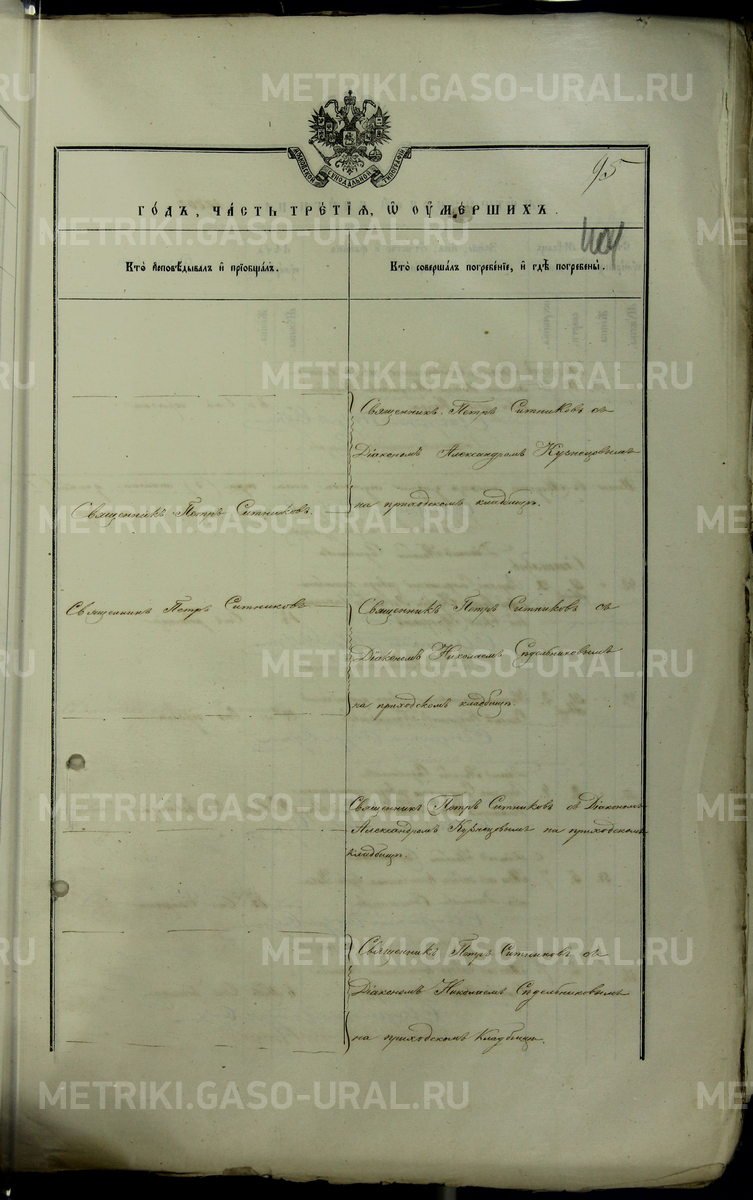 95
МОСКОВСКОЙ СѴНОДАЛЬНОЙ ТИПОГРАФІИ
ГО́ДЪ, ЧА́СТЬ ТРЕ́ТІѦ, Ѡ҆ ОУ҆МЕ́РШИХЪ.
Кто̀ и҆сповѣ́дывалъ и҆ прїѡбща́лъ.
Кто̀ соверша́лъ погребе́нїе, и҆ гдѣ̀ погребены̀.
Священникъ Петръ Ситниковъ съ
Діакономъ Александромъ Кузнецовымъ
на приходскомъ кладбищѣ.
Священникъ Петръ Ситниковъ.
Священникъ Петръ Ситниковъ
Священникъ Петръ Ситниковъ съ
Діакономъ Николаемъ Сѣдельниковымъ
на приходскомъ кладбищѣ.
Священникъ Петръ Ситниковъ съ Діакономъ
Александромъ Кузнецовымъ на приходскомъ
кладбищѣ.
Священникъ Петръ Ситниковъ съ
Діакономъ Николаемъ Сѣдельниковымъ
на приходскомъ кладбищѣ.
METRIKI.GASO-URAL.RU